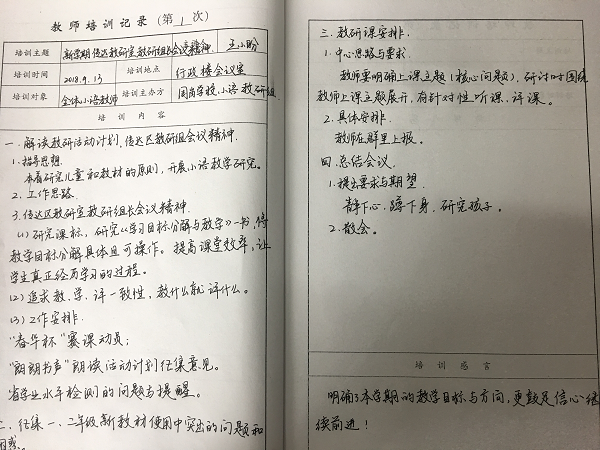 教师培训记录(第1次)
培训主题 新学期传达区教研室教研组长会议精神 王小盼
培训时间 2018.9.13 培训地点 行政楼会议室
培训对象 全体小语教师 培训主办方 国尚学校小语教研组
培训内容
一.解读教研活动计划,传达区教研组会议精神.
1.指导思想.
本着研究儿童和教材的原则,开展小语教学研究。
2.工作思路.
3.传达区教研室教研组长会议精神.
(1)研究课标,研究《学习目标分解与教学》一书,将
教学目标分解具体且可操作。提高课堂效率,让
学生真正经历学习的过程。
(2)追求教、学、评一致性,教什么就评什么。
(3)工作安排.
“春华杯”赛课动员;
“朗朗书声”朗读活动计划征集意见。
省学业水平检测的问题与提醒。
二.征集一、二年级新教材使用中突出的问题和
困惑。
三.教研课安排.
1.中心思路与要求.
教师要明确上课主题(核心问题),研讨时围绕
教师上课主题展开,有针对性听课、评课。
2.具体安排.
教师在群里上报。
四.总结会议.
1.提出要求与期望.
静下心、蹲下身、研究孩子。
2.散会。
培训感言
明确了本学期的教学目标与方向,更鼓足信心继
续前进!